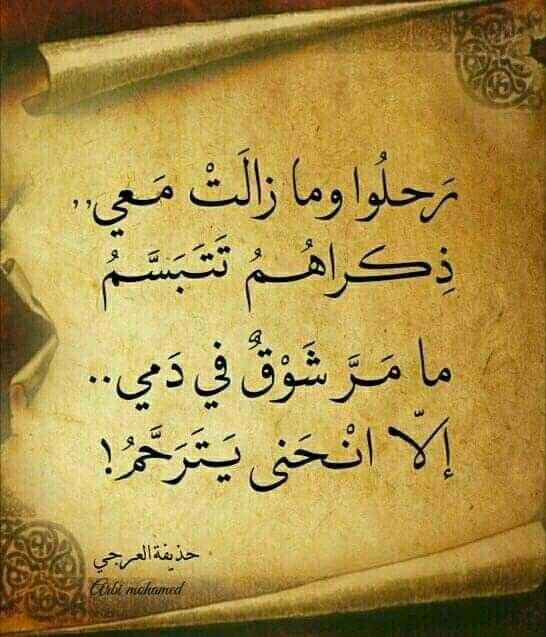 رَحلُوا وما زالَتْ مَعي,,
ذِكراهُمُ تَتَبَسَّمُ
ما مَرَّ شَوْقٌ في دَمي..
إلّا انْحَنى يَتَرَحَّمُ!
حذيفة العرجي
Arbi mohamed